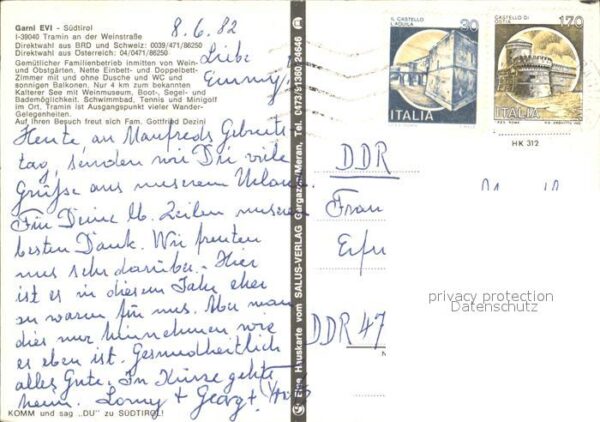 Garni EVI - Südtirol
I-39040 Tramin an der Weinstraße
Direktwahl aus BRD und Schweiz: 0039/471/86250
Direktwahl aus Österreich: 04/0471/86250
Gemütlicher Familienbetrieb inmitten von Wein-
und Obstgärten. Nette Einbett- und Doppelbett-
Zimmer mit und ohne Dusche und WC und
sonnigen Balkonen. Nur 4 km zum bekannten
Kalterer See mit Weinmuseum, Boot-, Segel- und
Bademöglichkeit. Schwimmbad, Tennis und Minigolf
im Ort. Tramin ist Ausgangspunkt vieler Wander-
Gelegenheiten.
Auf Ihren Besuch freut sich Fam. Gottfried Dezini
8.6.82
Liebe
Emmy,
Heute, an Manfreds Geburts-
tag, senden wir Dir viele
Grüße aus unserem Urlaub.
Für Deine lb. Zeilen unseren
besten Dank. Wir freuten
uns sehr darüber. Hier
ist es in diesem Jahr eher
zu warm für uns. Aber man
muss hinnehmen wie
es eben ist. Gesundheitlich
alles Gute. In Kürze geht's
heim. Lonny + Georg +
KOMM und sag „DU" zu SÜDTIROL!
Eine Hauskarte vom SALUS-VERLAG Gargazon/Meran, Tel. 0473/91360, 24646
IL CASTELLO
L'AQUILA
30
ITALIA
CASTELLO DI
OSTIA
170
ITALIA
HK 312
DDR
Frau
DDR 47
privacy protection
Datenschutz